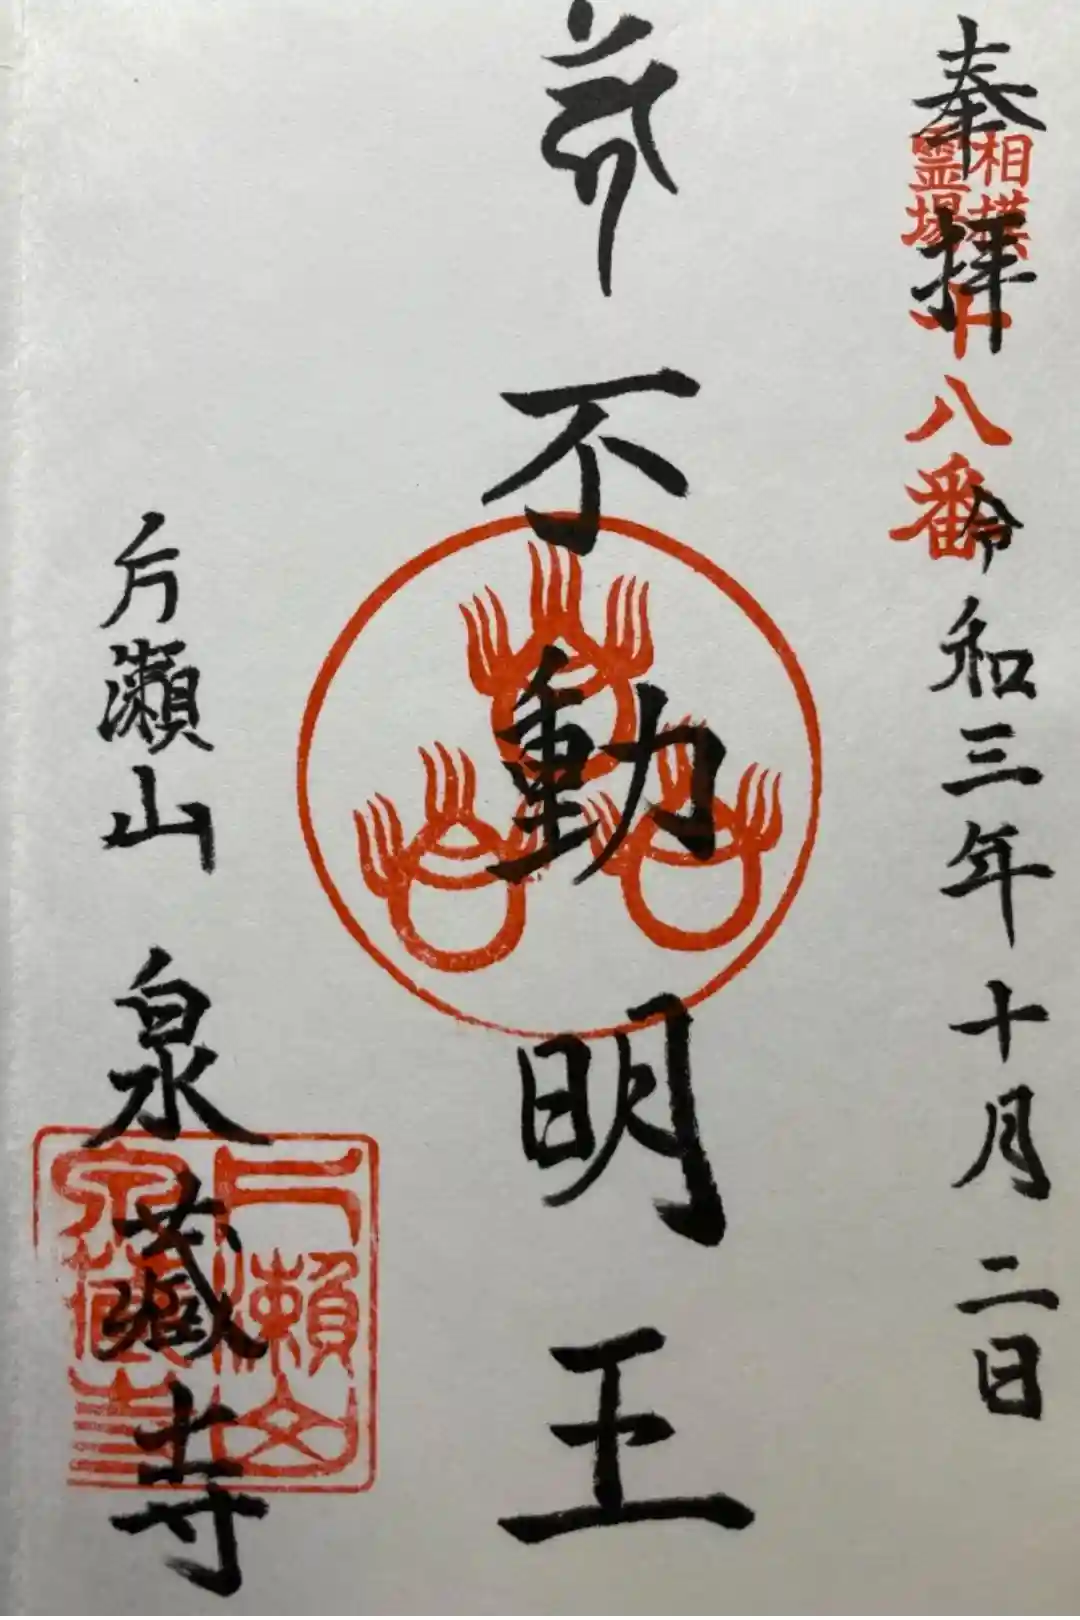 奉拝
相模
霊場
十八番
令和三年十月二日
不動明王
片瀬山
泉蔵寺
片瀬山
泉蔵寺